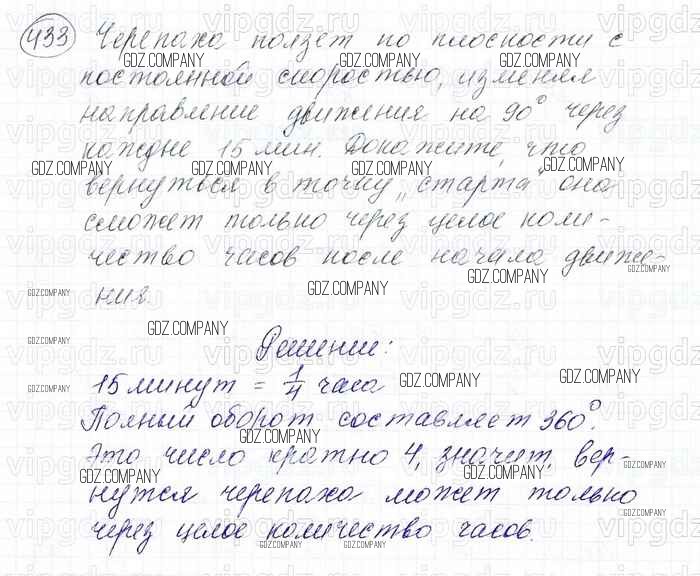 433 Черепаха ползет по плоскости с
постоянной скоростью, изменяя
направление движения на 90° через
каждые 15 мин. Докажите, что
вернуться в точку „старта" она
сможет только через целое коли-
чество часов после начала движе-
ния.
Решение:
15 минут = 1/4 часа
Полный оборот составляет 360°.
Это число кратно 4, значит, вер-
нутся черепаха может только
через целое количество часов.